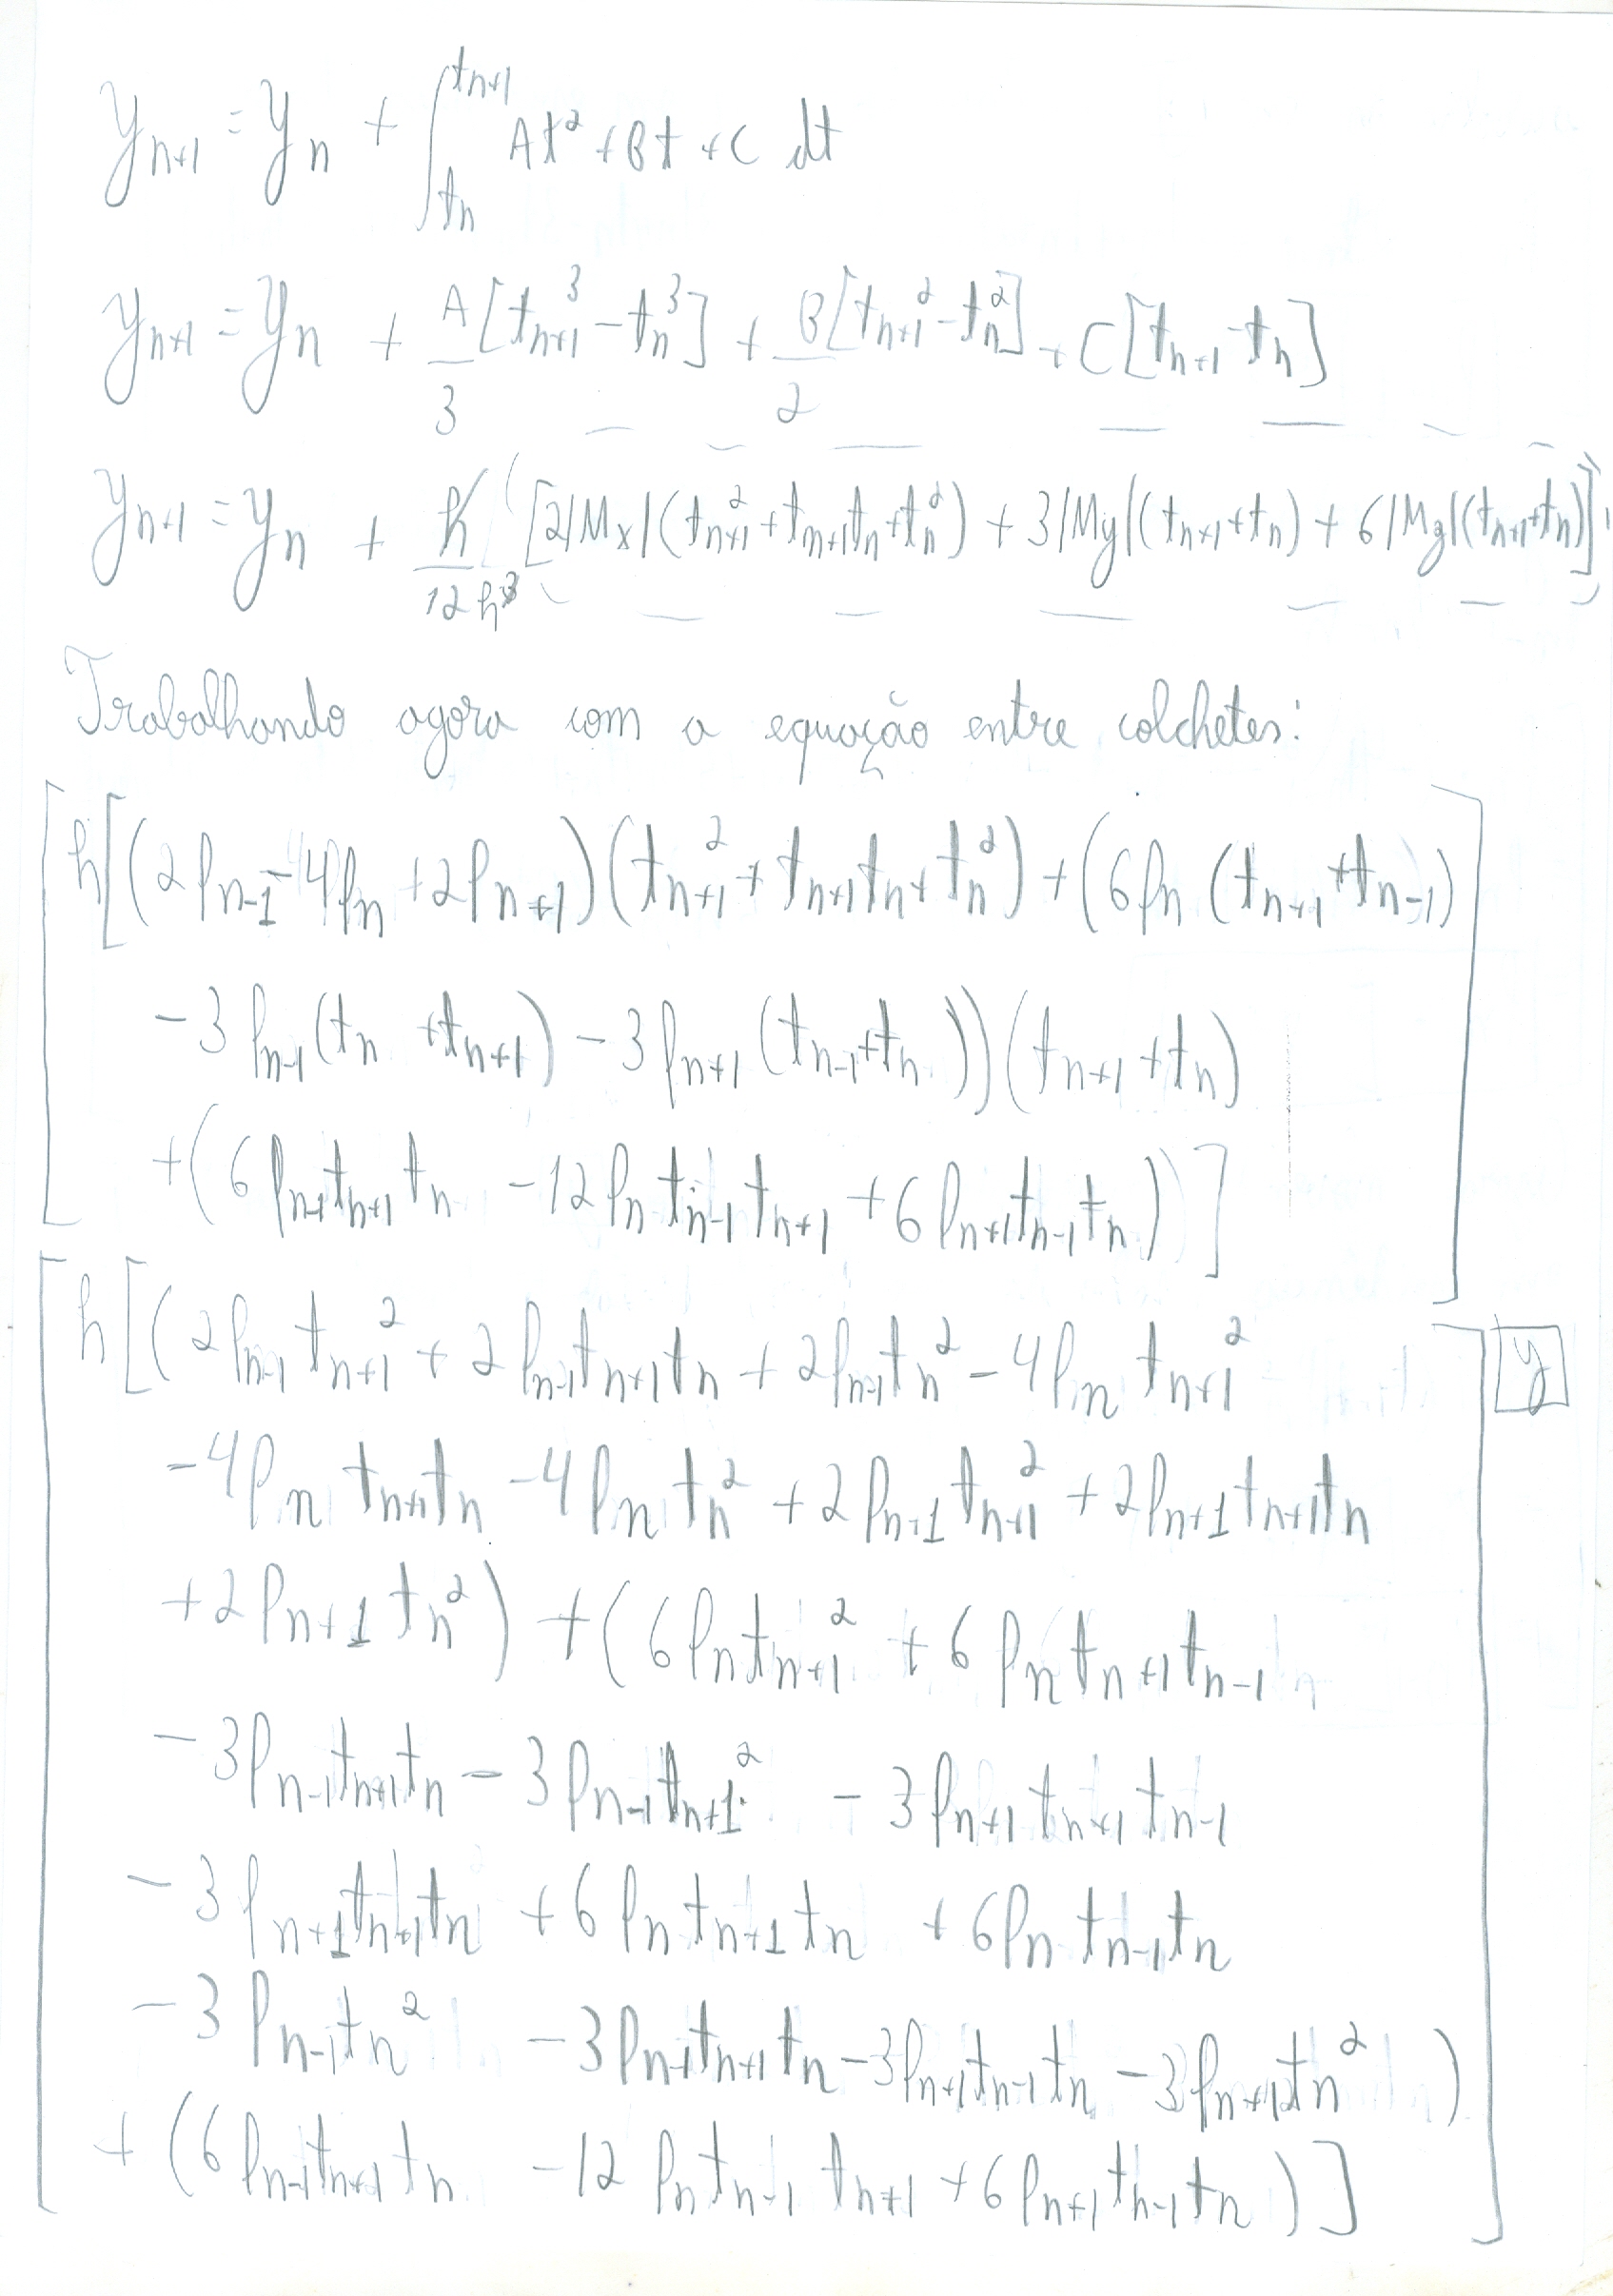 y_{n+1} = y_n + ∫_{t_n}^{t_{n+1}} At² + Bt + C dt
y_{n+1} = y_n + A/3 [t_{n+1}³ - t_n³] + B/2 [t_{n+1}² - t_n²] + C[t_{n+1} - t_n]
y_{n+1} = y_n + h/12h³ ([2|Mx|(t_{n+1}² + t_{n+1}t_n + t_n²) + 3|My|(t_{n+1} + t_n) + 6|Mz|(t_{n+1} + t_n)])
Trabalhando agora com a equação entre colchetes:
[h[(2f_{n-1} - 4f_n + 2f_{n+1})(t_{n+1}² + t_{n+1}t_n + t_n²) + (6f_n (t_{n+1} + t_{n-1})
- 3f_{n-1}(t_n + t_{n+1}) - 3f_{n+1}(t_{n-1} + t_n))(t_{n+1} + t_n)
+ (6f_{n-1}t_{n+1}t_n - 12f_n t_{n-1}t_{n+1} + 6f_{n+1}t_{n-1}t_n)]]
[h[(2f_{n-1}t_{n+1}² + 2f_{n-1}t_{n+1}t_n + 2f_{n-1}t_n² - 4f_n t_{n+1}² y
- 4f_n t_{n+1}t_n - 4f_n t_n² + 2f_{n+1}t_{n+1}² + 2f_{n+1}t_{n+1}t_n
+ 2f_{n+1}t_n²) + (6f_n t_{n+1}² + 6f_n t_{n+1}t_{n-1}
- 3f_{n-1}t_{n+1}t_n - 3f_{n-1}t_{n+1}² - 3f_{n+1}t_{n+1}t_{n-1}
- 3f_{n+1}t_{n+1}t_n + 6f_n t_{n+1}t_n + 6f_n t_{n-1}t_n
- 3f_{n-1}t_n² - 3f_{n-1}t_{n+1}t_n - 3f_{n+1}t_{n-1}t_n - 3f_{n+1}t_n²)
+ (6f_{n-1}t_{n+1}t_n - 12f_n t_{n-1}t_{n+1} + 6f_{n+1}t_{n-1}t_n)]]